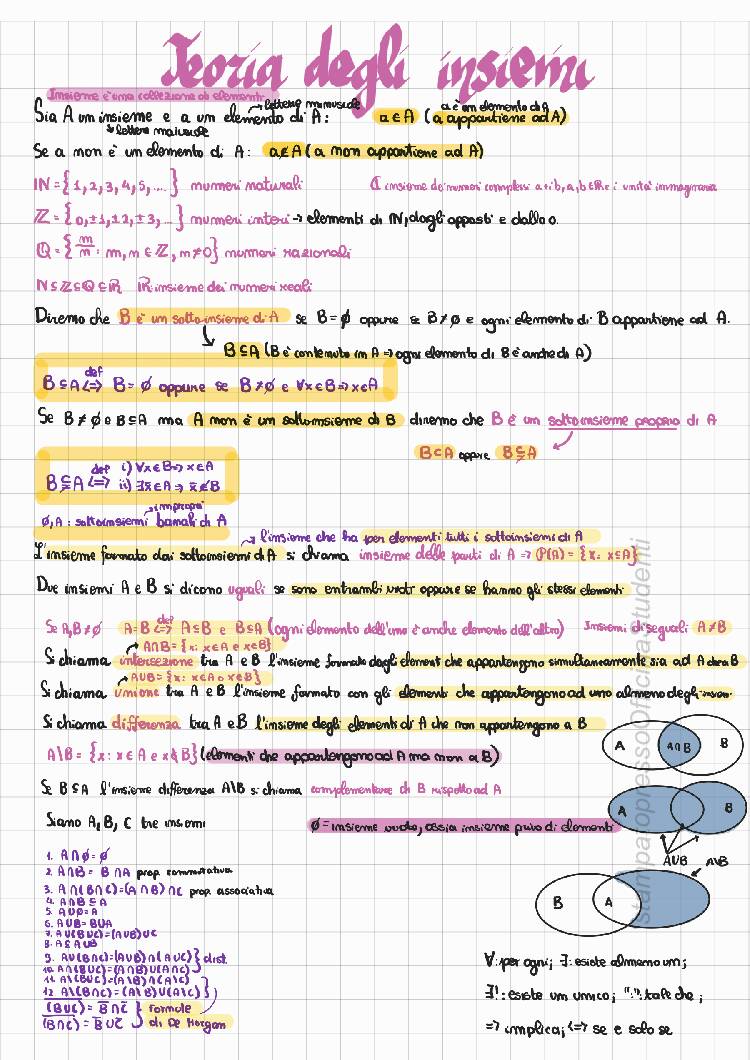 Teoria degli insiemi
Insieme è una collezione di elementi
→ lettera minuscola
a è un elemento di A
Sia A un insieme e a un elemento di A: a∈A (a appartiene ad A)
↳ lettera maiuscola
Se a non è un elemento di A: a∉A (a non appartiene ad A)
ℕ={1,2,3,4,5,...} numeri naturali ℂ insieme dei numeri complessi a+ib, a,b∈ℝ e i unità immaginaria
ℤ={0,±1,±2,±3,...} numeri interi → elementi di ℕ, dagli opposti e dallo 0.
ℚ={m/n : m,n∈ℤ, n≠0} numeri razionali
ℕ⊆ℤ⊆ℚ⊆ℝ ℝ: insieme dei numeri reali
Diremo che B è un sottoinsieme di A se B=∅ oppure se B≠∅ e ogni elemento di B appartiene ad A.
B⊆A (B è contenuto in A → ogni elemento di B è anche di A)
B⊆A ⇔ def B=∅ oppure se B≠∅ e ∀x∈B⇒x∈A
Se B≠∅ e B⊆A ma A non è un sottoinsieme di B diremo che B è un sottoinsieme proprio di A
B⊂A oppure B⊊A
B⊊A ⇔ def i) ∀x∈B⇒x∈A
ii) ∃x̄∈A ⇒ x̄∉B
→ impropri
∅,A: sottoinsiemi banali di A
→ l'insieme che ha per elementi tutti i sottoinsiemi di A
L'insieme formato dai sottoinsiemi di A si chiama insieme delle parti di A ⇒ P(A)={x: x⊆A}
Due insiemi A e B si dicono uguali se sono entrambi vuoti oppure se hanno gli stessi elementi
Se A,B≠∅ A=B ⇔ def A⊆B e B⊆A (ogni elemento dell'uno è anche elemento dell'altro) Insiemi diseguali A≠B
→ A∩B={x: x∈A e x∈B}
Si chiama intersezione tra A e B l'insieme formato dagli elementi che appartengono simultaneamente sia ad A che a B
→ A∪B={x: x∈A o x∈B}
Si chiama unione tra A e B l'insieme formato con gli elementi che appartengono ad uno almeno degli insiemi.
Si chiama differenza tra A e B l'insieme degli elementi di A che non appartengono a B
A\B={x: x∈A e x∉B} (elementi che appartengono ad A ma non a B)
A A∩B B
Se B⊆A l'insieme differenza A\B si chiama complementare di B rispetto ad A
A B
Siano A, B, C tre insiemi ∅=insieme vuoto, ossia insieme privo di elementi
A∪B A\B
1. A∩∅=∅
2. A∩B=B∩A prop. commutativa
3. A∩(B∩C)=(A∩B)∩C prop. associativa
4. A∩B⊆A
5. A∪∅=A
6. A∪B=B∪A
7. A∪(B∪C)=(A∪B)∪C
8. A⊆A∪B
9. A∪(B∩C)=(A∪B)∩(A∪C) } dist.
10. A∩(B∪C)=(A∩B)∪(A∩C)
11. A\(B∪C)=(A\B)∩(A\C)
12. A\(B∩C)=(A\B)∪(A\C)
(B∪C)=B̄∩C̄ } formule
(B∩C)=B̄∪C̄ di De Morgan
B A
∀: per ogni; ∃: esiste almeno un;
∃!: esiste un unico; ":": tale che;
⇒ implica; ⇔ se e solo se